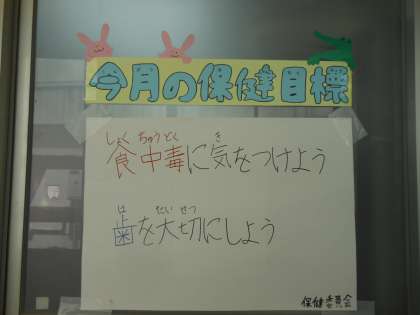 今月の保健目標
しょく ちゅう どく き
食中毒に気をつけよう
は たい せつ
歯を大切にしよう
保健委員会